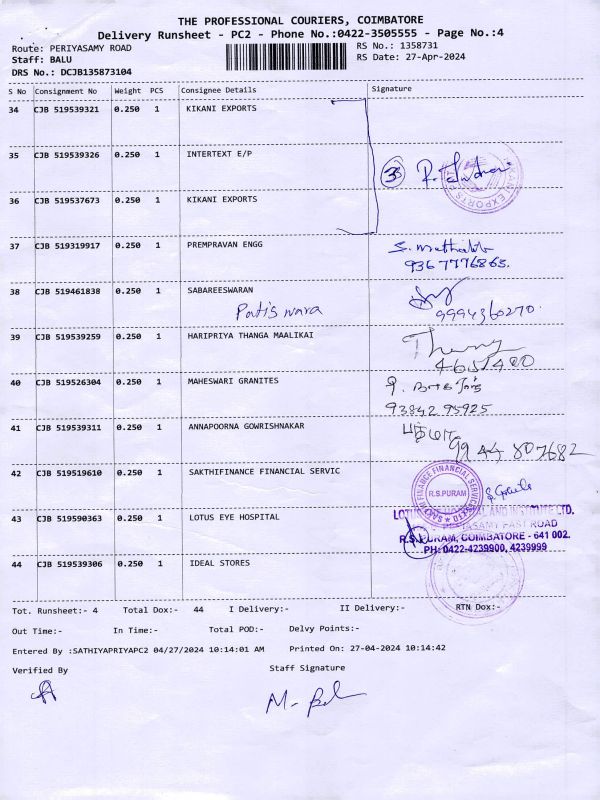 THE PROFESSIONAL COURIERS, COIMBATORE
Delivery Runsheet - PC2 - Phone No.:0422-3505555 - Page No.:4
Route: PERIYASAMY ROAD
RS No.: 1358731
Staff: BALU
RS Date: 27-Apr-2024
DRS No.: DCJB135873104
S No Consignment No Weight PCS Consignee Details Signature
34 CJB 519539321 0.250 1 KIKANI EXPORTS
35 CJB 519539326 0.250 1 INTERTEXT E/P
3
36 CJB 519537673 0.250 1 KIKANI EXPORTS
37 CJB 519319917 0.250 1 PREMPRAVAN ENGG
9367776865.
38 CJB 519461838 0.250 1 SABAREESWARAN
9994360270.
39 CJB 519539259 0.250 1 HARIPRIYA THANGA MAALIKAI
40 CJB 519526304 0.250 1 MAHESWARI GRANITES
93842 95925
41 CJB 519539311 0.250 1 ANNAPOORNA GOWRISHNAKAR
9944 807682
42 CJB 519519610 0.250 1 SAKTHIFINANCE FINANCIAL SERVIC
R.S.PURAM
43 CJB 519590363 0.250 1 LOTUS EYE HOSPITAL
R.S.PURAM, COIMBATORE - 641 002.
PH: 0422-4239900, 4239999
44 CJB 519539306 0.250 1 IDEAL STORES
Tot. Runsheet:- 4 Total Dox:- 44 I Delivery:- II Delivery:- RTN Dox:-
Out Time:- In Time:- Total POD:- Delvy Points:-
Entered By :SATHIYAPRIYAPC2 04/27/2024 10:14:01 AM Printed On: 27-04-2024 10:14:42
Verified By Staff Signature